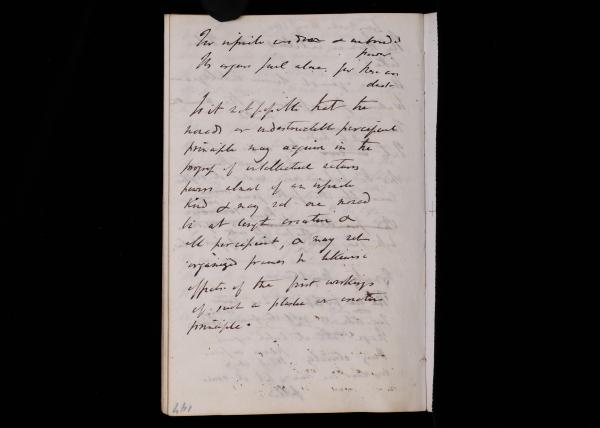 & unbound
power
Its organs fail alone. for there are
Is it not possible that the
monads or indestructible percipient
principle may acquire in the
progress of intellectual actions
powers almost of an infinite
kind & may not one monad
be at length creative &
all percipient, & may not
organized frames be likewise
effects of the first workings
of such a plastic or creative
principle.